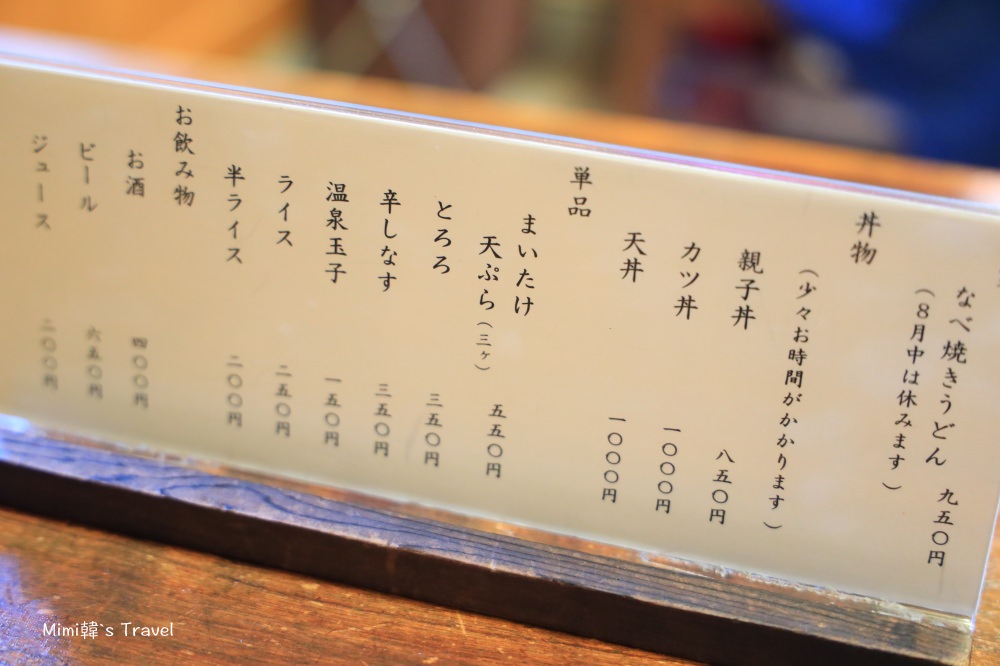 なべ焼きうどん 九五〇円
（8月中は休みます）
丼物
（少々お時間がかかります）
親子丼 八五〇円
カツ丼 一〇〇〇円
天丼 一〇〇〇円
単品
まいたけ
天ぷら（三ヶ） 五五〇円
とろろ 三五〇円
辛しなす 三五〇円
温泉玉子 一五〇円
ライス 二五〇円
半ライス 二〇〇円
お飲み物
お酒 四〇〇円
ビール 六五〇円
ジュース 二〇〇円
Mimi韓`s Travel